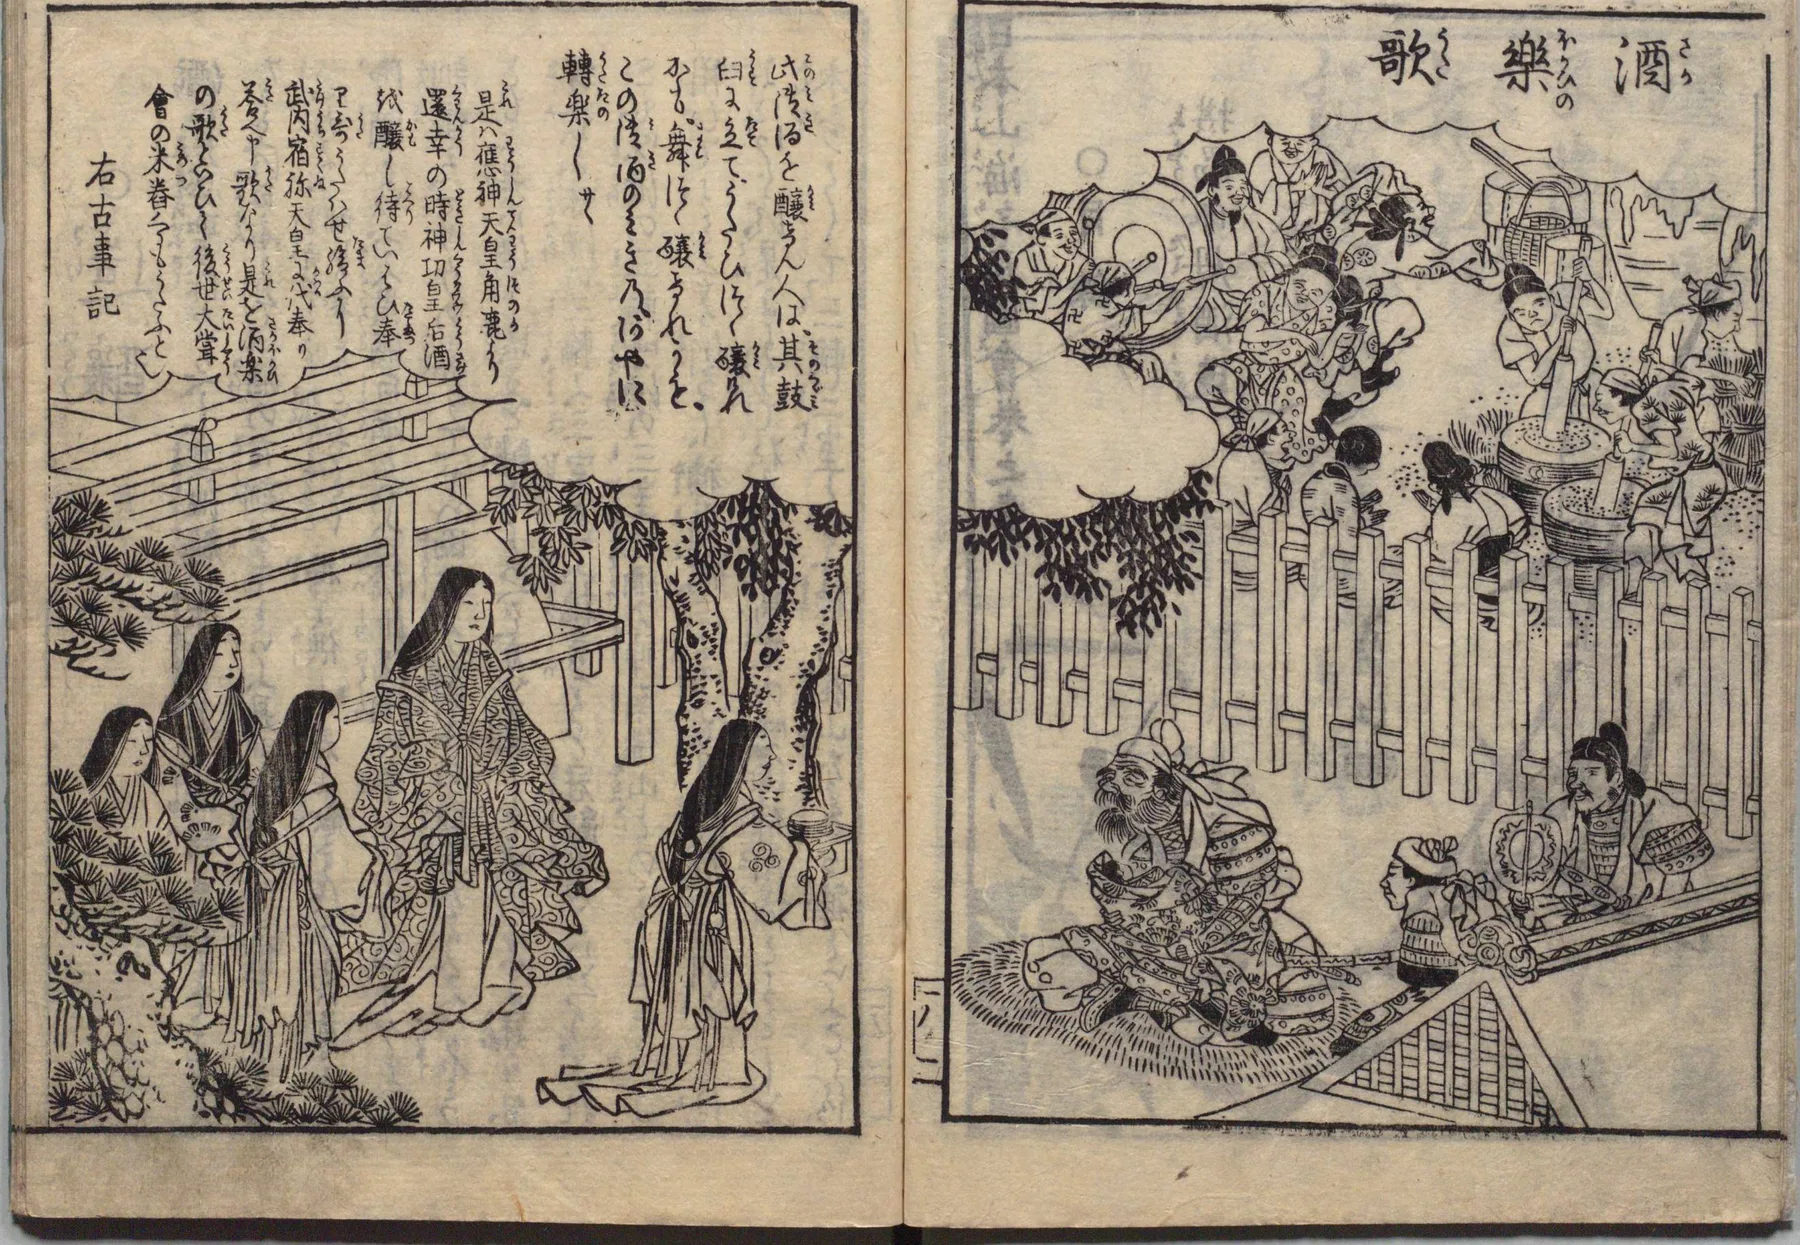 酒樂歌
此御酒を醸けん人は、其鼓
臼に立てうたひつゝ醸けれ
かも、舞つゝ醸けれかも、
この御酒のみきのあやに
轉楽しサゝ
是ハ應神天皇角鹿より
還幸の時神功皇后酒
を醸し待ていはひ奉
り
武内宿祢天皇に代奉り
答へ申歌なり是を酒楽
の歌といひて後世大甞
會の米舂にもうたふと
右古事記